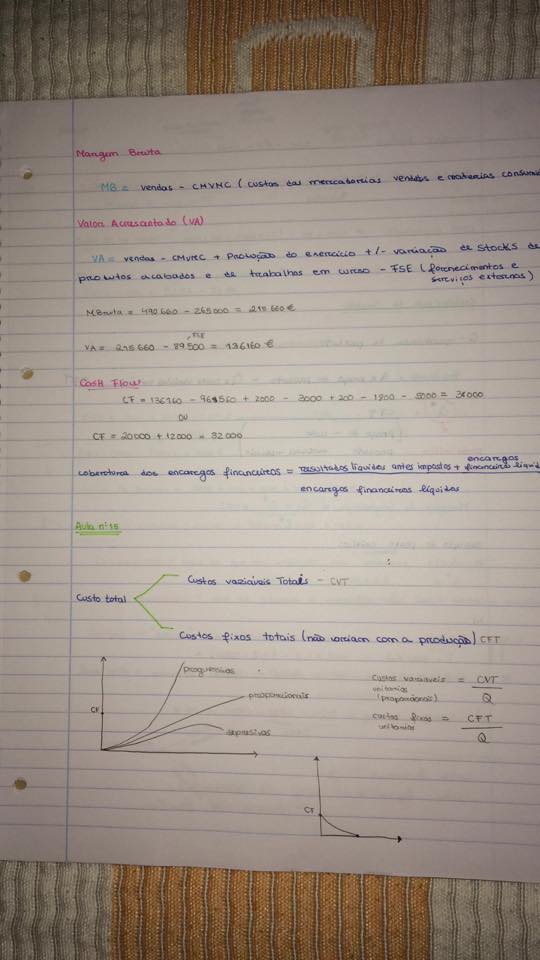 Margem Bruta
MB = vendas - CMVMC (custos das mercadorias vendidas e matérias consumi
Valor Acrescentado (VA)
VA = vendas - CMVMC + Produção do exercício +/- variação de stocks de
produtos acabados e de trabalhos em curso - FSE (fornecimentos e
serviços externos)
M Bruta = 490 660 - 265 000 = 215 660 €
, FSE
VA = 215 660 - 89 500 = 136 160 €
Cash Flow
CF = 136 160 - + 2000 - 3000 + 200 - 1800 - = 
ou
CF = 20 000 + 12 000 = 32 000
cobertura dos encargos financeiros = resultados líquidos antes impostos + encargos financeiros líquid
encargos financeiros líquidos
Aula nº 15
Custos variáveis Totais - CVT
Custo total
Custos fixos totais (não variam com a produção) CFT
progressivos
proporcionais
CF
Custos variáveis unitários (proporcionais) = CVT / Q
custos fixos unitários = CFT / Q
CF